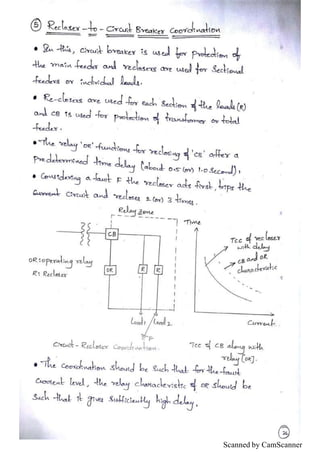 ⑤ Recloser-to-Circuit Breaker Coordination
• In this, circuit breaker is used for protection of
the main feeder and reclosers are used for Sectional
feeders or individual loads.
• Re-closers are used for each section of the loads (R)
and CB is used for protection of transformer or total
feeder.
• The relay 'OR' functions for reclosing of 'CB' after a
Predetermined time delay (about 0.5 (or) 1.0 second),
• Considering a fault F the recloser acts first, trips the
Current Circuit and recloses 2 (or) 3 times.
Relay Zone
CB
OR
R
R
OR: operating relay
R: Recloser
Load 1
Load 2
F
Circuit-Recloser Coordination
Time
TCC of recloser
with delay
CB and OR
characteristic
Current
TCC of CB along with
relay [OR].
• The coordination should be such that for the fault
Current level, the relay characteristic of OR should be
Such that it gives Sufficiently high delay.
26
Scanned by CamScanner